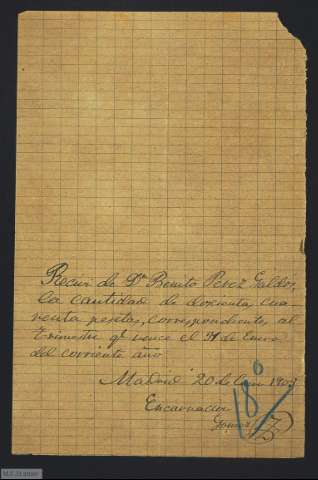 Recivi de Dn Benito Perez Galdós
la cantidad de doscientas cua
renta pesetas, correspondiente al
Trimestre qe vence el de Enero
del corriente año
Madrid 20 de 1903
Encarnacion
Gomez
18º